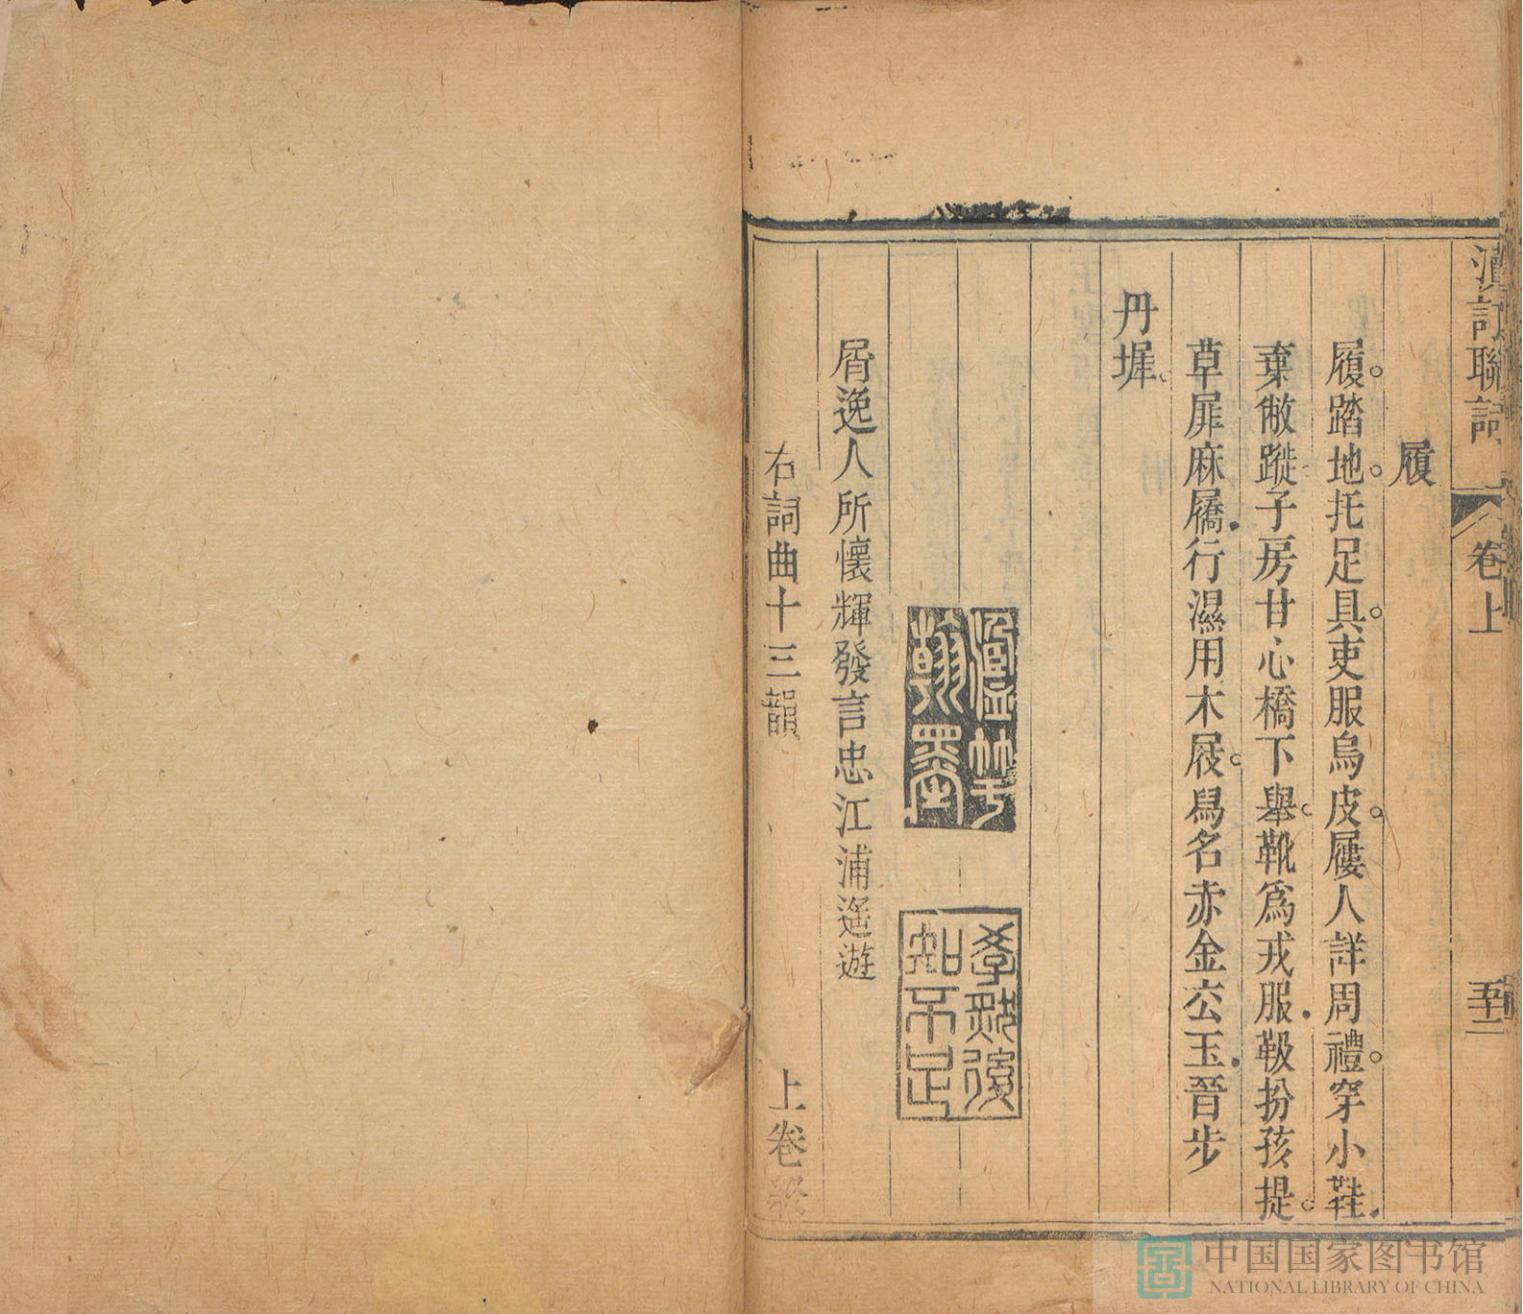 聯詞
卷上
五十二
履
履踏地托足具吏服烏皮屨人詳周禮穿小鞋
棄敝蹤子房甘心橋下舉靴為戎服靸扮孩提
草屝麻屩行濕用木屐舄名赤金玄玉晉步
丹墀
學然後
知不足
屑逸人所懷輝發言忠江浦遥遊
右詞曲十三韻
上卷終
中国国家图书馆
NATIONAL LIBRARY OF CHINA